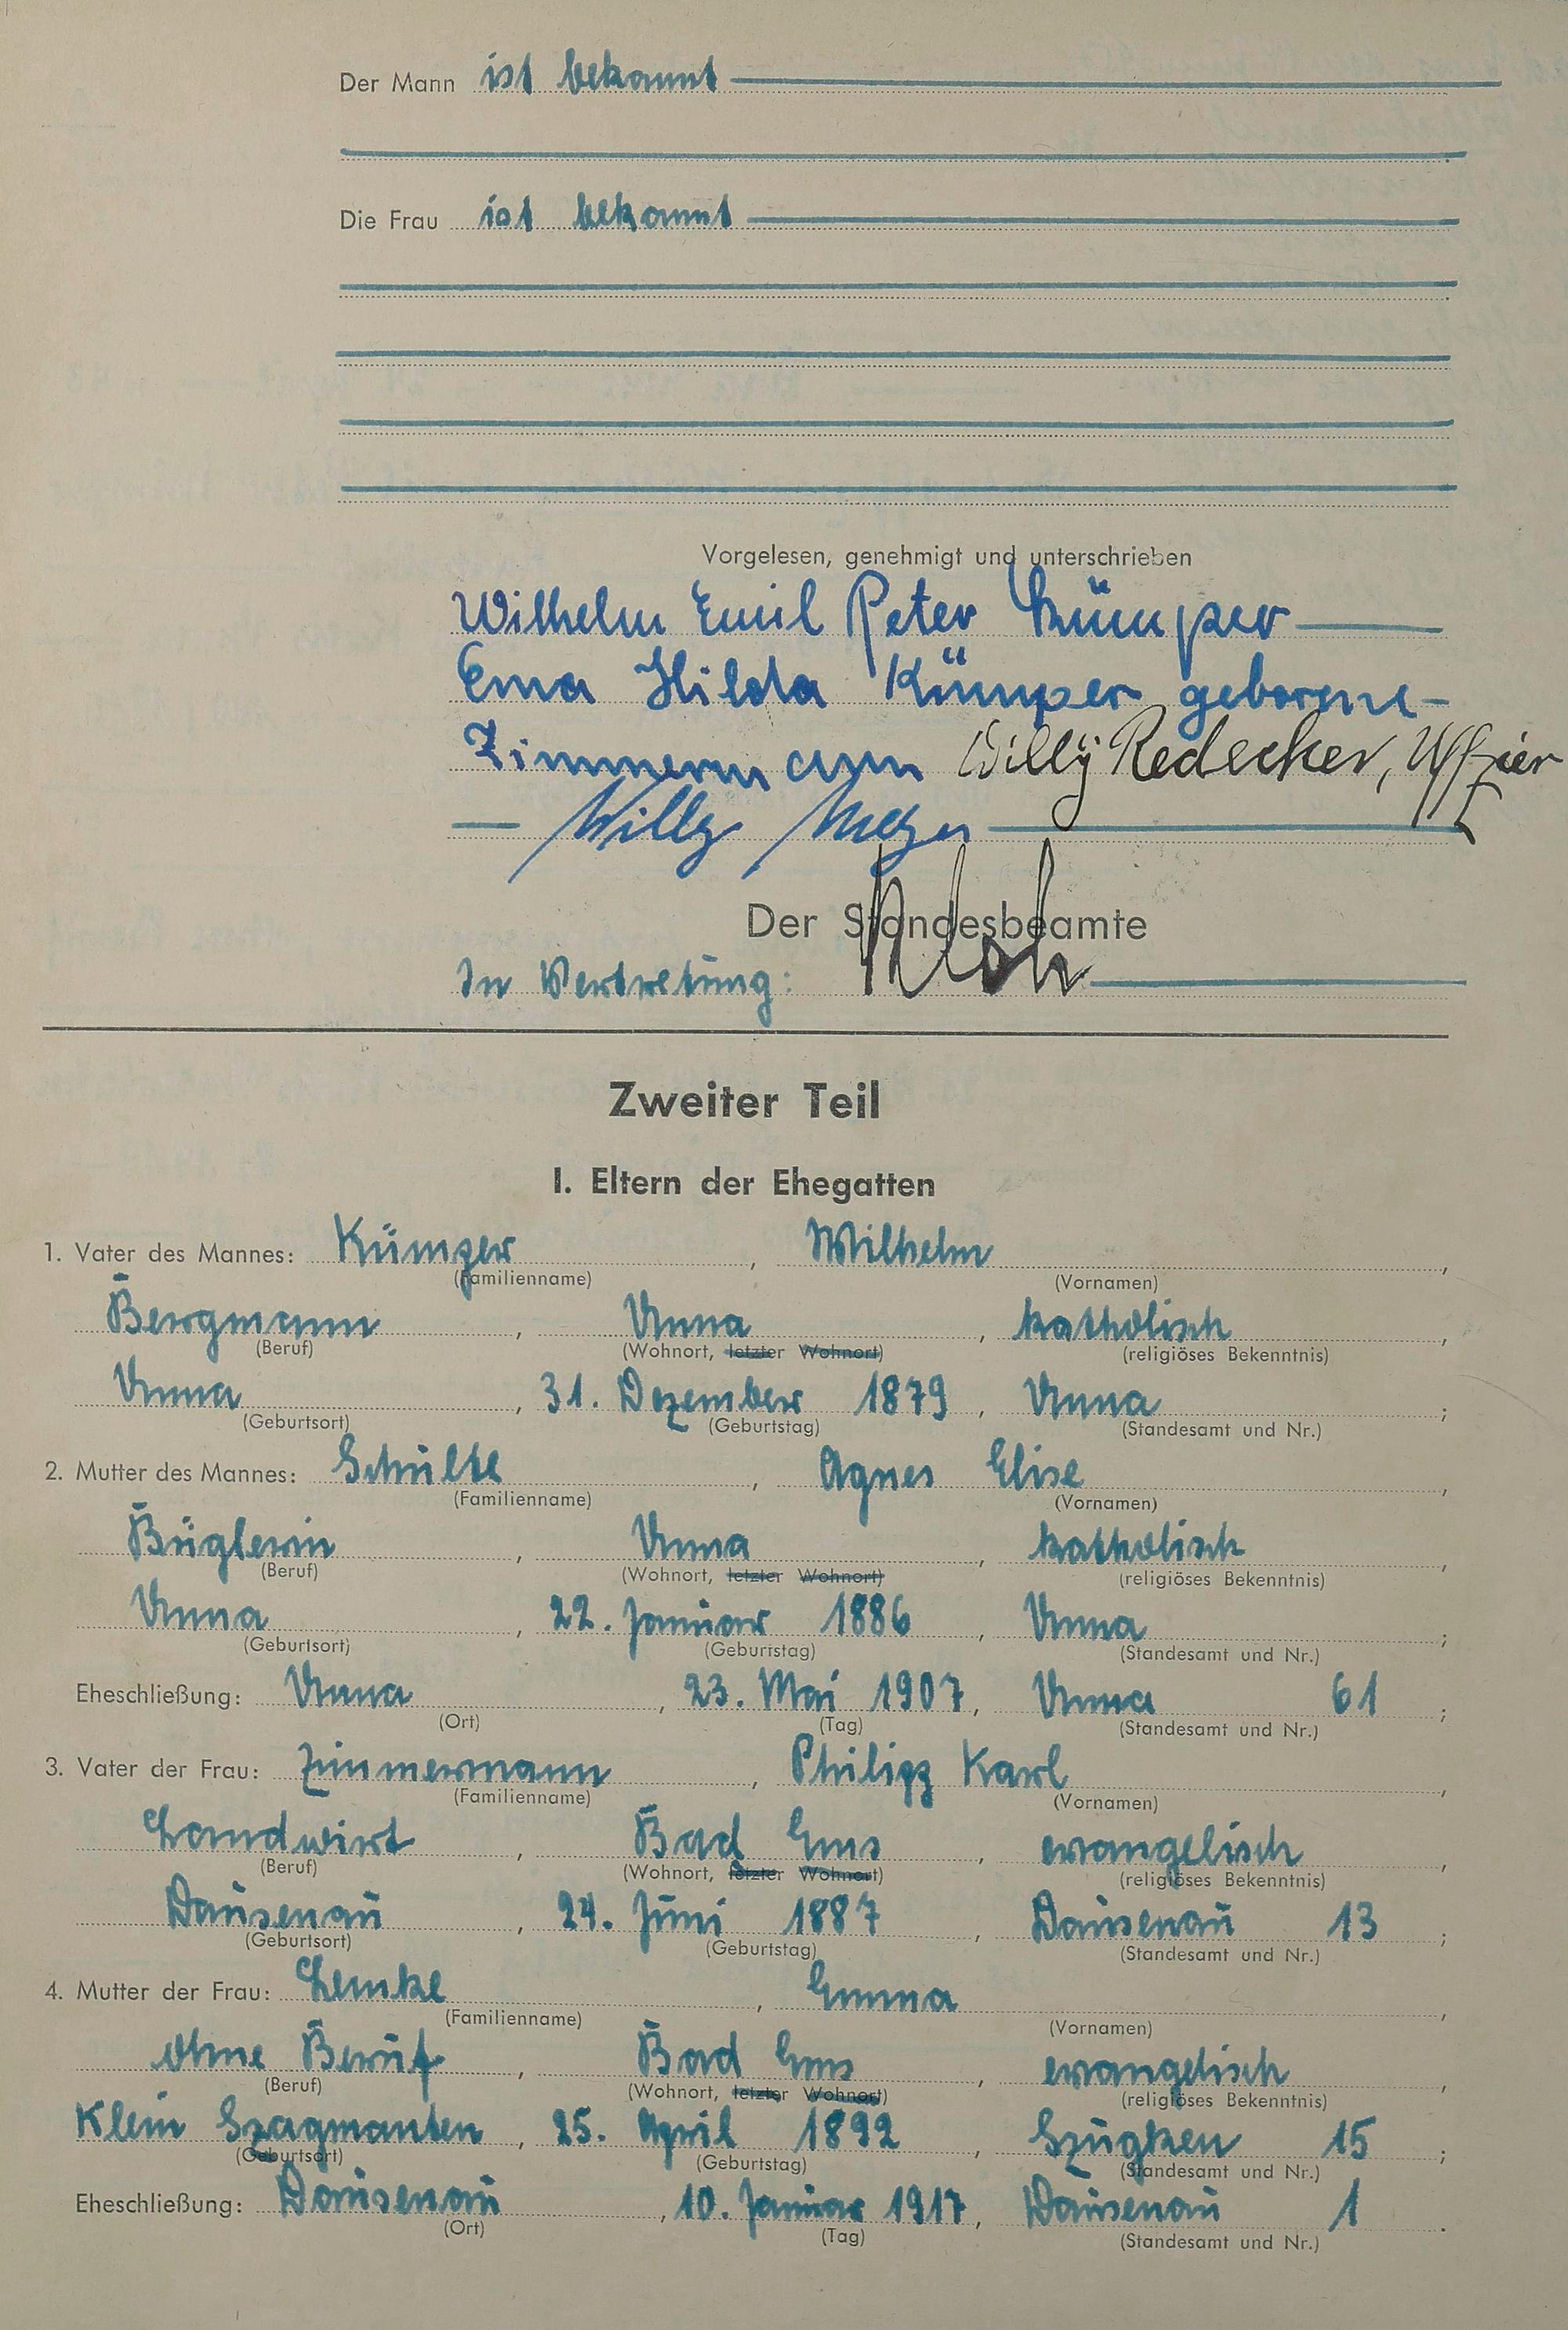 Der Mann ist bekannt
Die Frau ist bekannt
Vorgelesen, genehmigt und unterschrieben
Wilhelm Emil Peter Kümper
Erna Hilda Kümper geborene
Zimmermann Willy Redecker, Uffzier
Willy Meyer
Der Standesbeamte
In Vertretung:
Zweiter Teil
I. Eltern der Ehegatten
1. Vater des Mannes: Kümper, Wilhelm,
(Familienname) (Vornamen)
Bergmann, Unna, katholisch,
(Beruf) (Wohnort, letzter Wohnort) (religiöses Bekenntnis)
Unna, 31. Dezember 1879, Unna;
(Geburtsort) (Geburtstag) (Standesamt und Nr.)
2. Mutter des Mannes: Schulte, Agnes Elise,
(Familienname) (Vornamen)
Büglerin, Unna, katholisch,
(Beruf) (Wohnort, letzter Wohnort) (religiöses Bekenntnis)
Unna, 22. Januar 1886, Unna;
(Geburtsort) (Geburtstag) (Standesamt und Nr.)
Eheschließung: Unna, 23. Mai 1907, Unna 61;
(Ort) (Tag) (Standesamt und Nr.)
3. Vater der Frau: Zimmermann, Philipp Karl,
(Familienname) (Vornamen)
Landwirt, Bad Ems, evangelisch,
(Beruf) (Wohnort, letzter Wohnort) (religiöses Bekenntnis)
Dausenau, 24. Juni 1887, Dausenau 13;
(Geburtsort) (Geburtstag) (Standesamt und Nr.)
4. Mutter der Frau: Lemke, Emma,
(Familienname) (Vornamen)
ohne Beruf, Bad Ems, evangelisch,
(Beruf) (Wohnort, letzter Wohnort) (religiöses Bekenntnis)
Klein Szagmanten, 25. April 1892, Szugken 15;
(Geburtsort) (Geburtstag) (Standesamt und Nr.)
Eheschließung: Dausenau, 10. Januar 1917, Dausenau 1.
(Ort) (Tag) (Standesamt und Nr.)